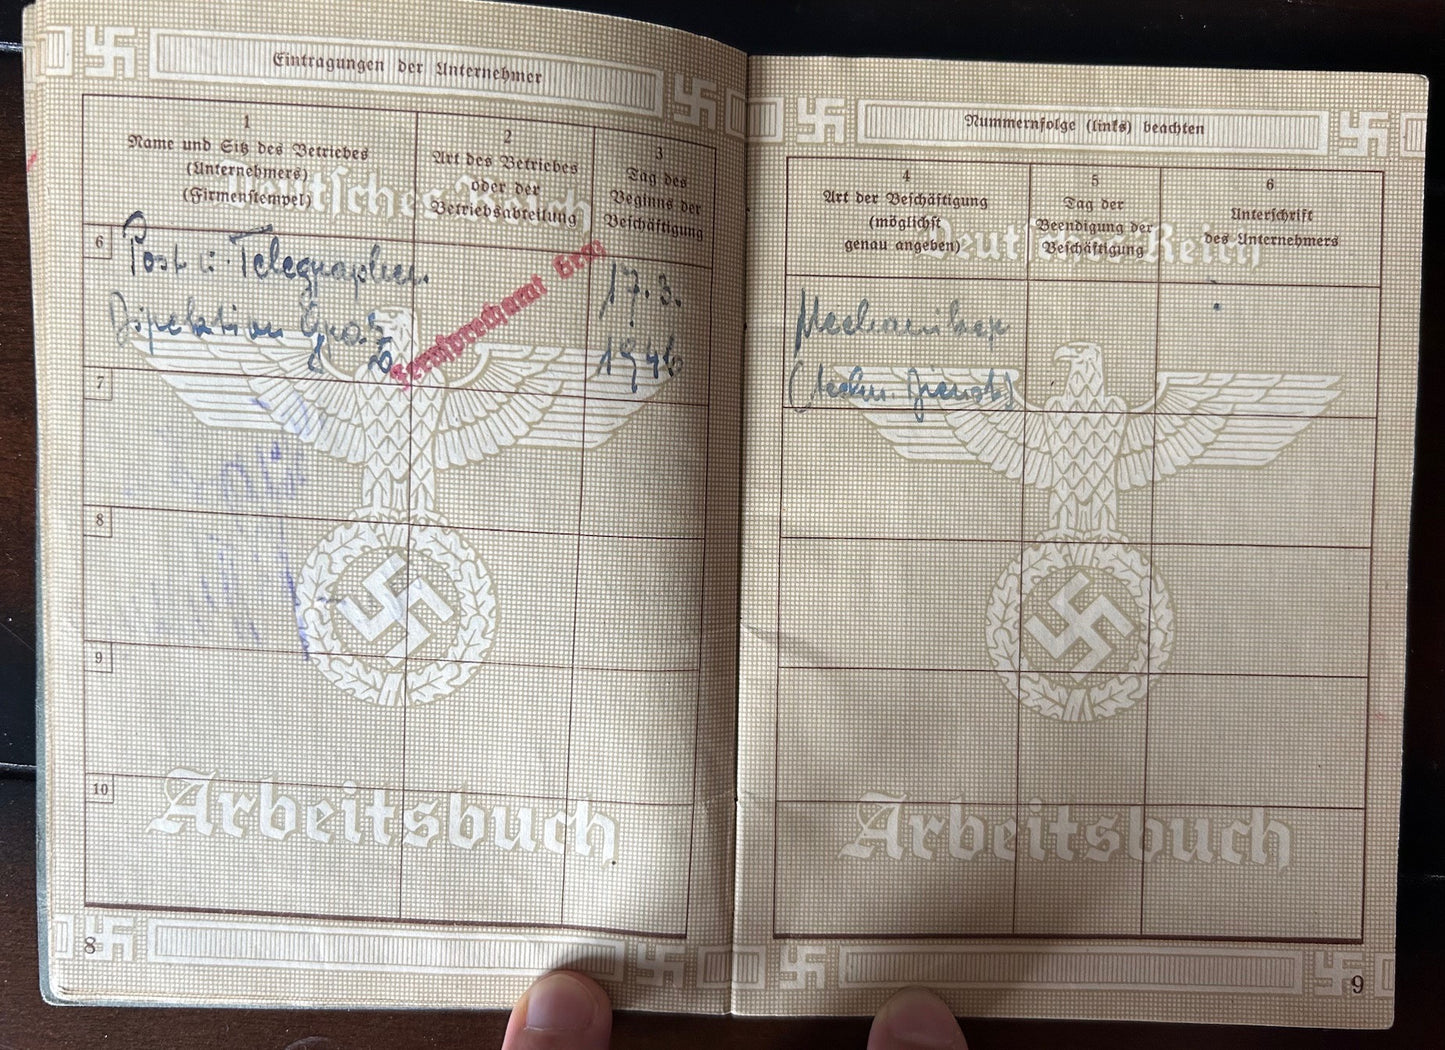 Eintragungen der Unternehmer
1
Name und Sitz des Betriebes
(Unternehmers)
(Firmenstempel)
2
Art des Betriebes
oder der
Betriebsabteilung
3
Tag des
Beginns der
Beschäftigung
Deutsches Reich
6
Post u. Telegraphen.
Direktion Graz
Fernsprechamt Graz
17.3.
1946
7
8
9
10
Arbeitsbuch
8
Nummernfolge (links) beachten
4
Art der Beschäftigung
(möglichst
genau angeben)
5
Tag der
Beendigung der
Beschäftigung
6
Unterschrift
des Unternehmers
Deutsches Reich
Mechaniker
(techn. Dienst)
Arbeitsbuch
9